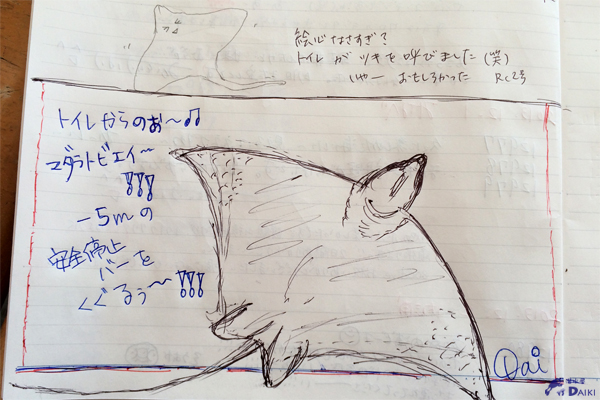 絵心なさすぎ？
トイレがツキを呼びました(笑)
いやー おもしろかった RC2号
トイレからのぉ～♫
マダラトビエイ～
!!!
-5mの
安全停止
バーを
くぐるぅ～!!!
Dai
DAIKI